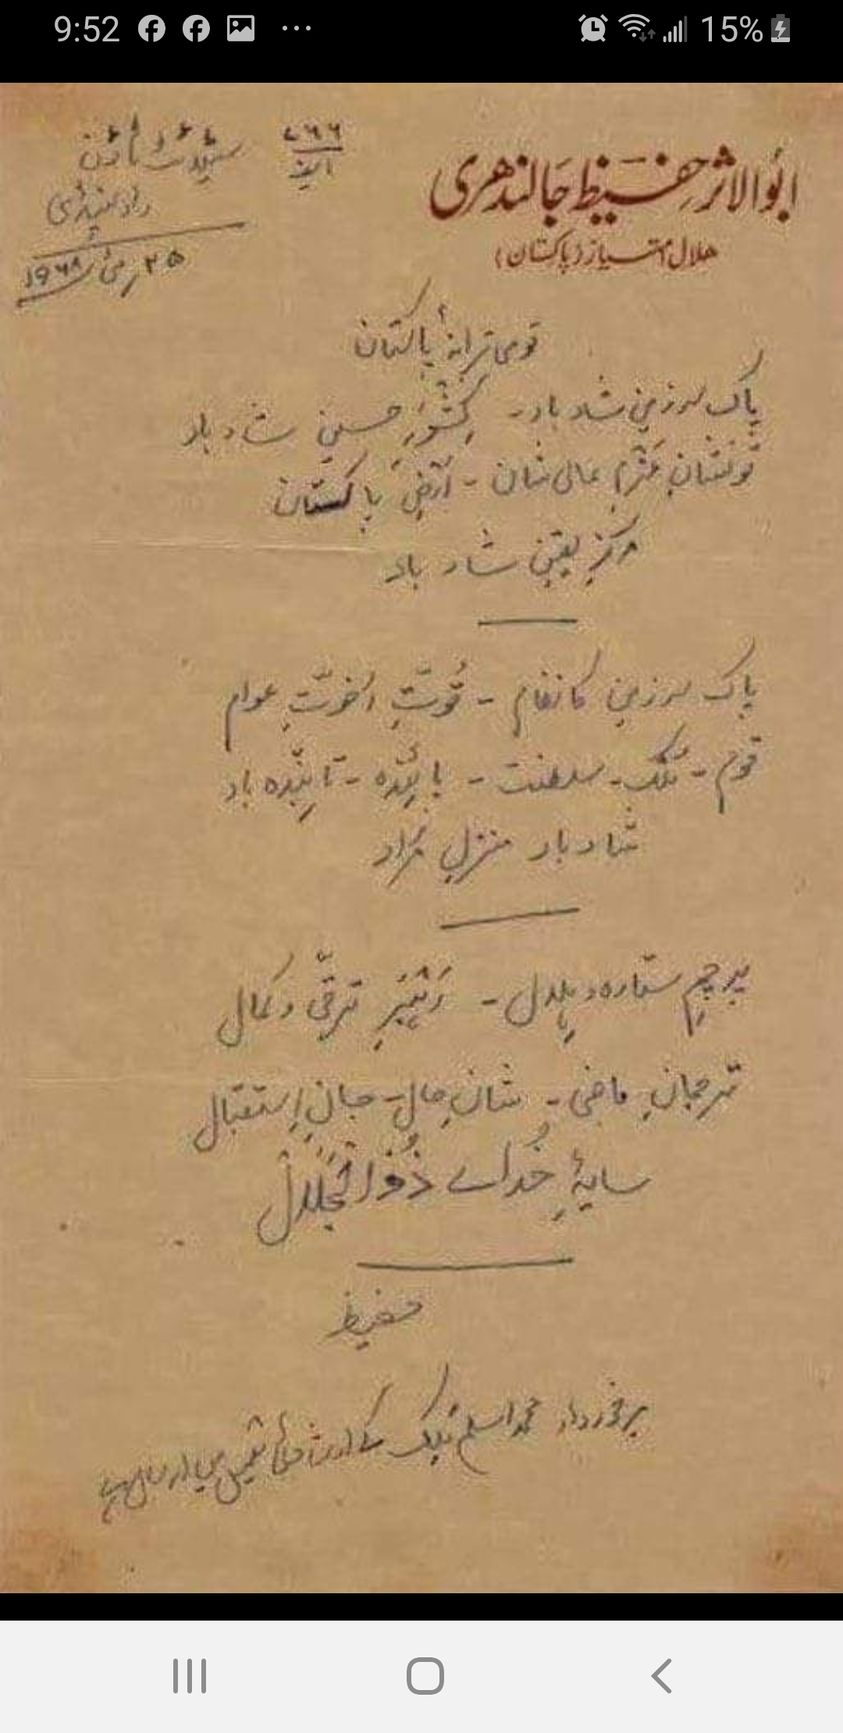 9:52
15%
ابوالاثر حفیظ جالندھری
ھلال امتیاز (پاکستان)
۷۸۶
سیٹلائٹ ٹاؤن
راولپنڈی
۲۵ مئی ۱۹۶۸
قومی ترانۂ پاکستان
پاک سرزمین شاد باد - کِشورِ حسین شاد باد
تُو نشانِ عَزْمِ عالی شان - اَرْضِ پاکستان
مرکزِ یقین شاد باد
پاک سرزمین کا نظام - قُوّتِ اُخوّتِ عوام
قوم - مُلک - سلطنت - پائِندہ - تابِندہ باد
شاد باد منزلِ مُراد
پرچمِ ستارہ و ہِلال - رَہْبَرِ ترقّی و کمال
ترجمانِ ماضی - شانِ حال - جانِ اِستقبال
سایۂ خُدائے ذُوالْجَلَالْ
حفیظ
برخوردار محمد اسلم ملک کے ارشاد کی تعمیل میں ارسال ہے